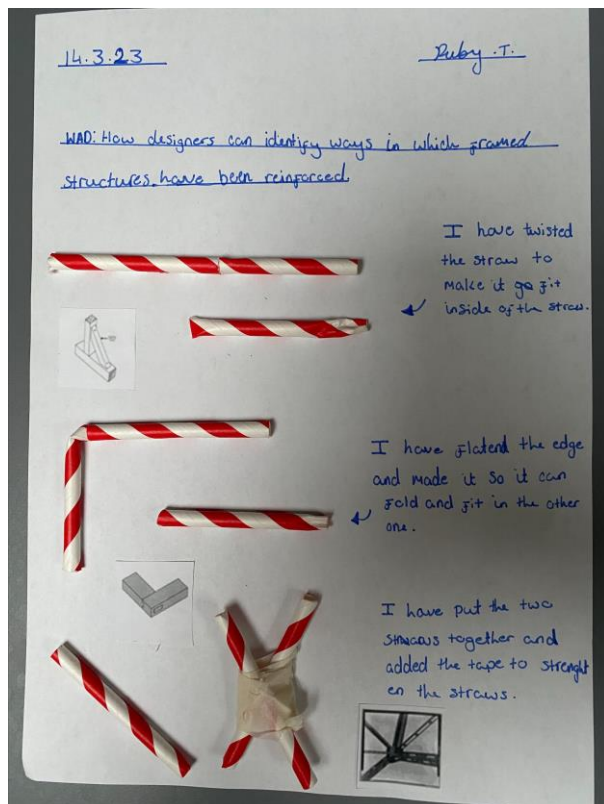 14.3.23
Ruby .T.
WAD: How designers can identify ways in which framed
structures have been reinforced
I have twisted
the straw to
make it go fit
inside of the straw.
I have flatend the edge
and made it so it can
fold and fit in the other
one.
I have put the two
together and
added the tape to strenght
en the straws.